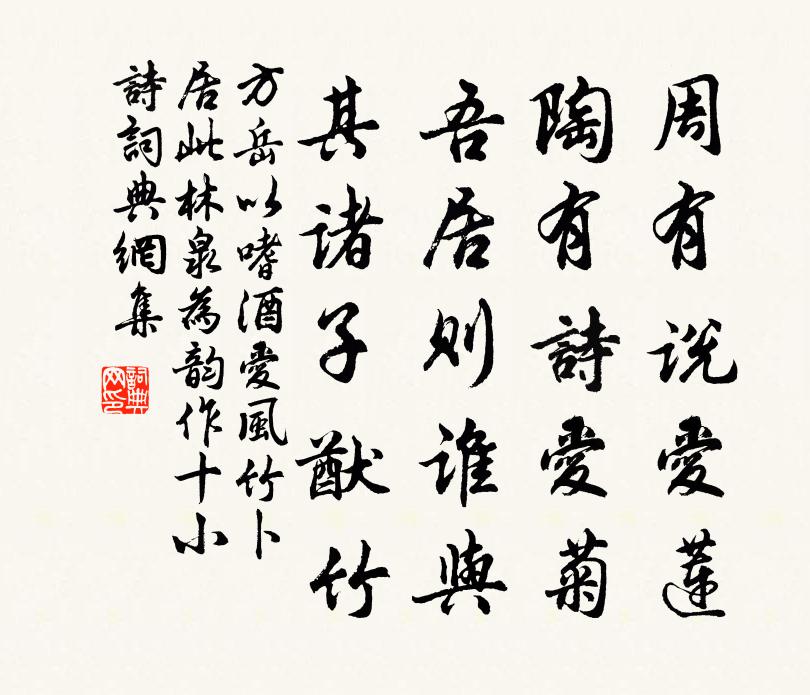 周有说愛蓮
陶有詩愛菊
吾居则誰與
其诸子猷竹
方岳以嗜酒愛風竹卜
居此林泉為韵作十小
詩詞典網集
詞典
网印